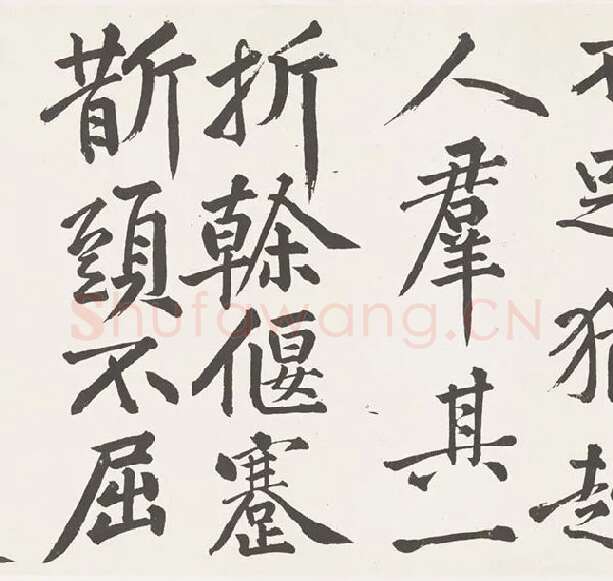 人羣其一
折榦偃蹇
斮頸不屈
Shufawang.CN